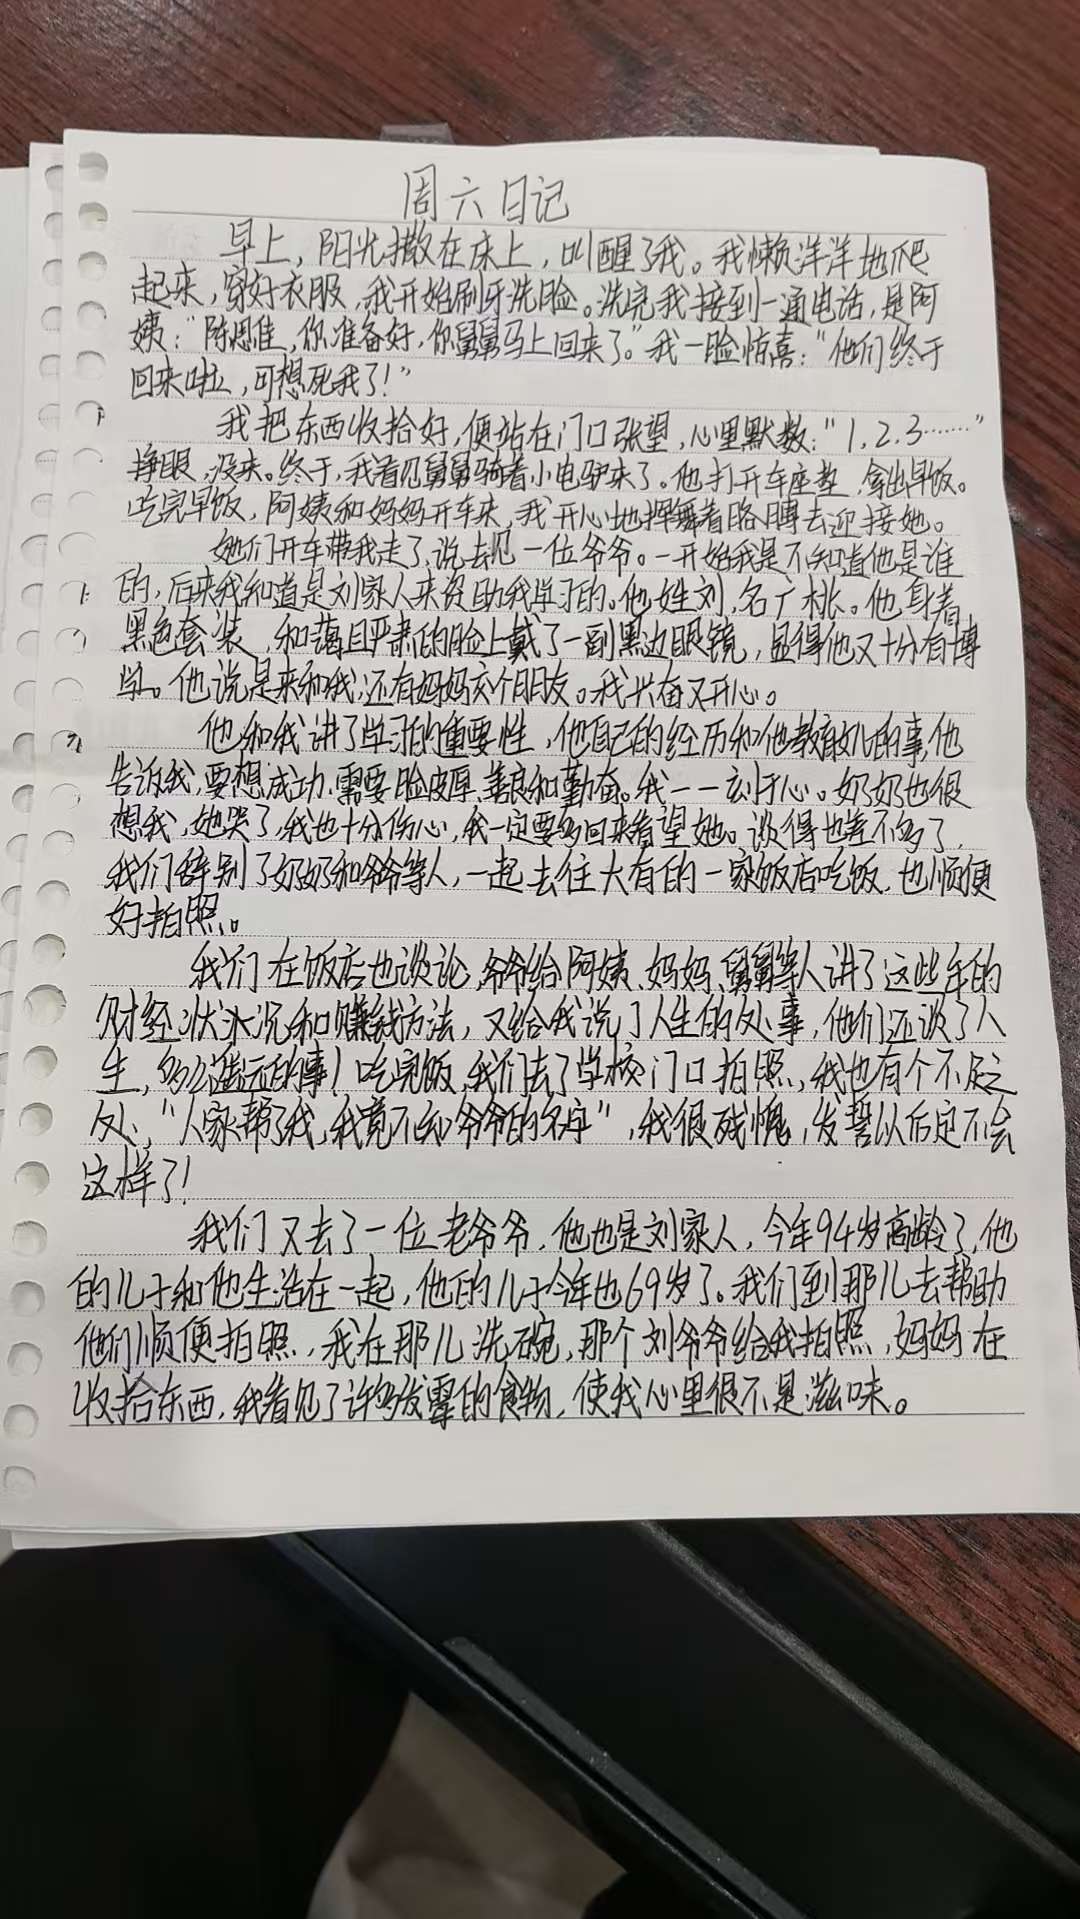 周六日记
早上，阳光撒在床上，叫醒了我。我懒洋洋地爬
起来，穿好衣服，我开始刷牙洗脸。洗完我接到一通电话，是阿
姨：“陈思佳，你准备好，你舅舅马上回来了。”我一脸惊喜：“他们终于
回来啦，可想死我了！”
我把东西收拾好，便站在门口张望，心里默数：“1，2，3……”
挣眼，没来。终于，我看见舅舅骑着小电驴来了。他打开车座垫，拿出早饭。
吃完早饭，阿姨和妈妈开车来，我开心地挥舞着胳膊去迎接她。
她们开车带我走了，说去见一位爷爷。一开始我是不知道他是谁
的，后来我知道是刘家人来资助我学习的。他姓刘，名广桃。他身着
黑色套装，和蔼且严肃的脸上戴了一副黑边眼镜，显得他又十分有博
学。他说是来和我，还有妈妈交个朋友。我兴奋又开心。
他和我讲了学习的重要性，他自己的经历和他教育儿的事，他
告诉我，要想成功，需要脸皮厚、善良和勤奋。我一一刻于心。奶奶也很
想我，她哭了，我也十分伤心，我一定要多回来看望她。谈得也差不多了，
我们辞别了奶奶和爷爷等人，一起去往大有的一家饭店吃饭，也顺便
好拍照。
我们在饭店也谈论，爷爷给阿姨、妈妈、舅舅等人讲了这些年的
财经状况和赚钱方法，又给我说了人生的处事，他们还谈了人
生，多么遥远的事！吃完饭，我们去了学校门口拍照，我也有个不足之
处，“人家帮了我，我竟不知爷爷的名字”，我很残愧，发誓以后定不会
这样了！
我们又去了一位老爷爷，他也是刘家人，今年94岁高龄了，他
的儿子和他生活在一起，他的儿子今年也69岁了。我们到那儿去帮助
他们顺便拍照，我在那儿洗碗，那个刘爷爷给我拍照，妈妈在
收拾东西，我看见了许多发霉的食物，使我心里很不是滋味。